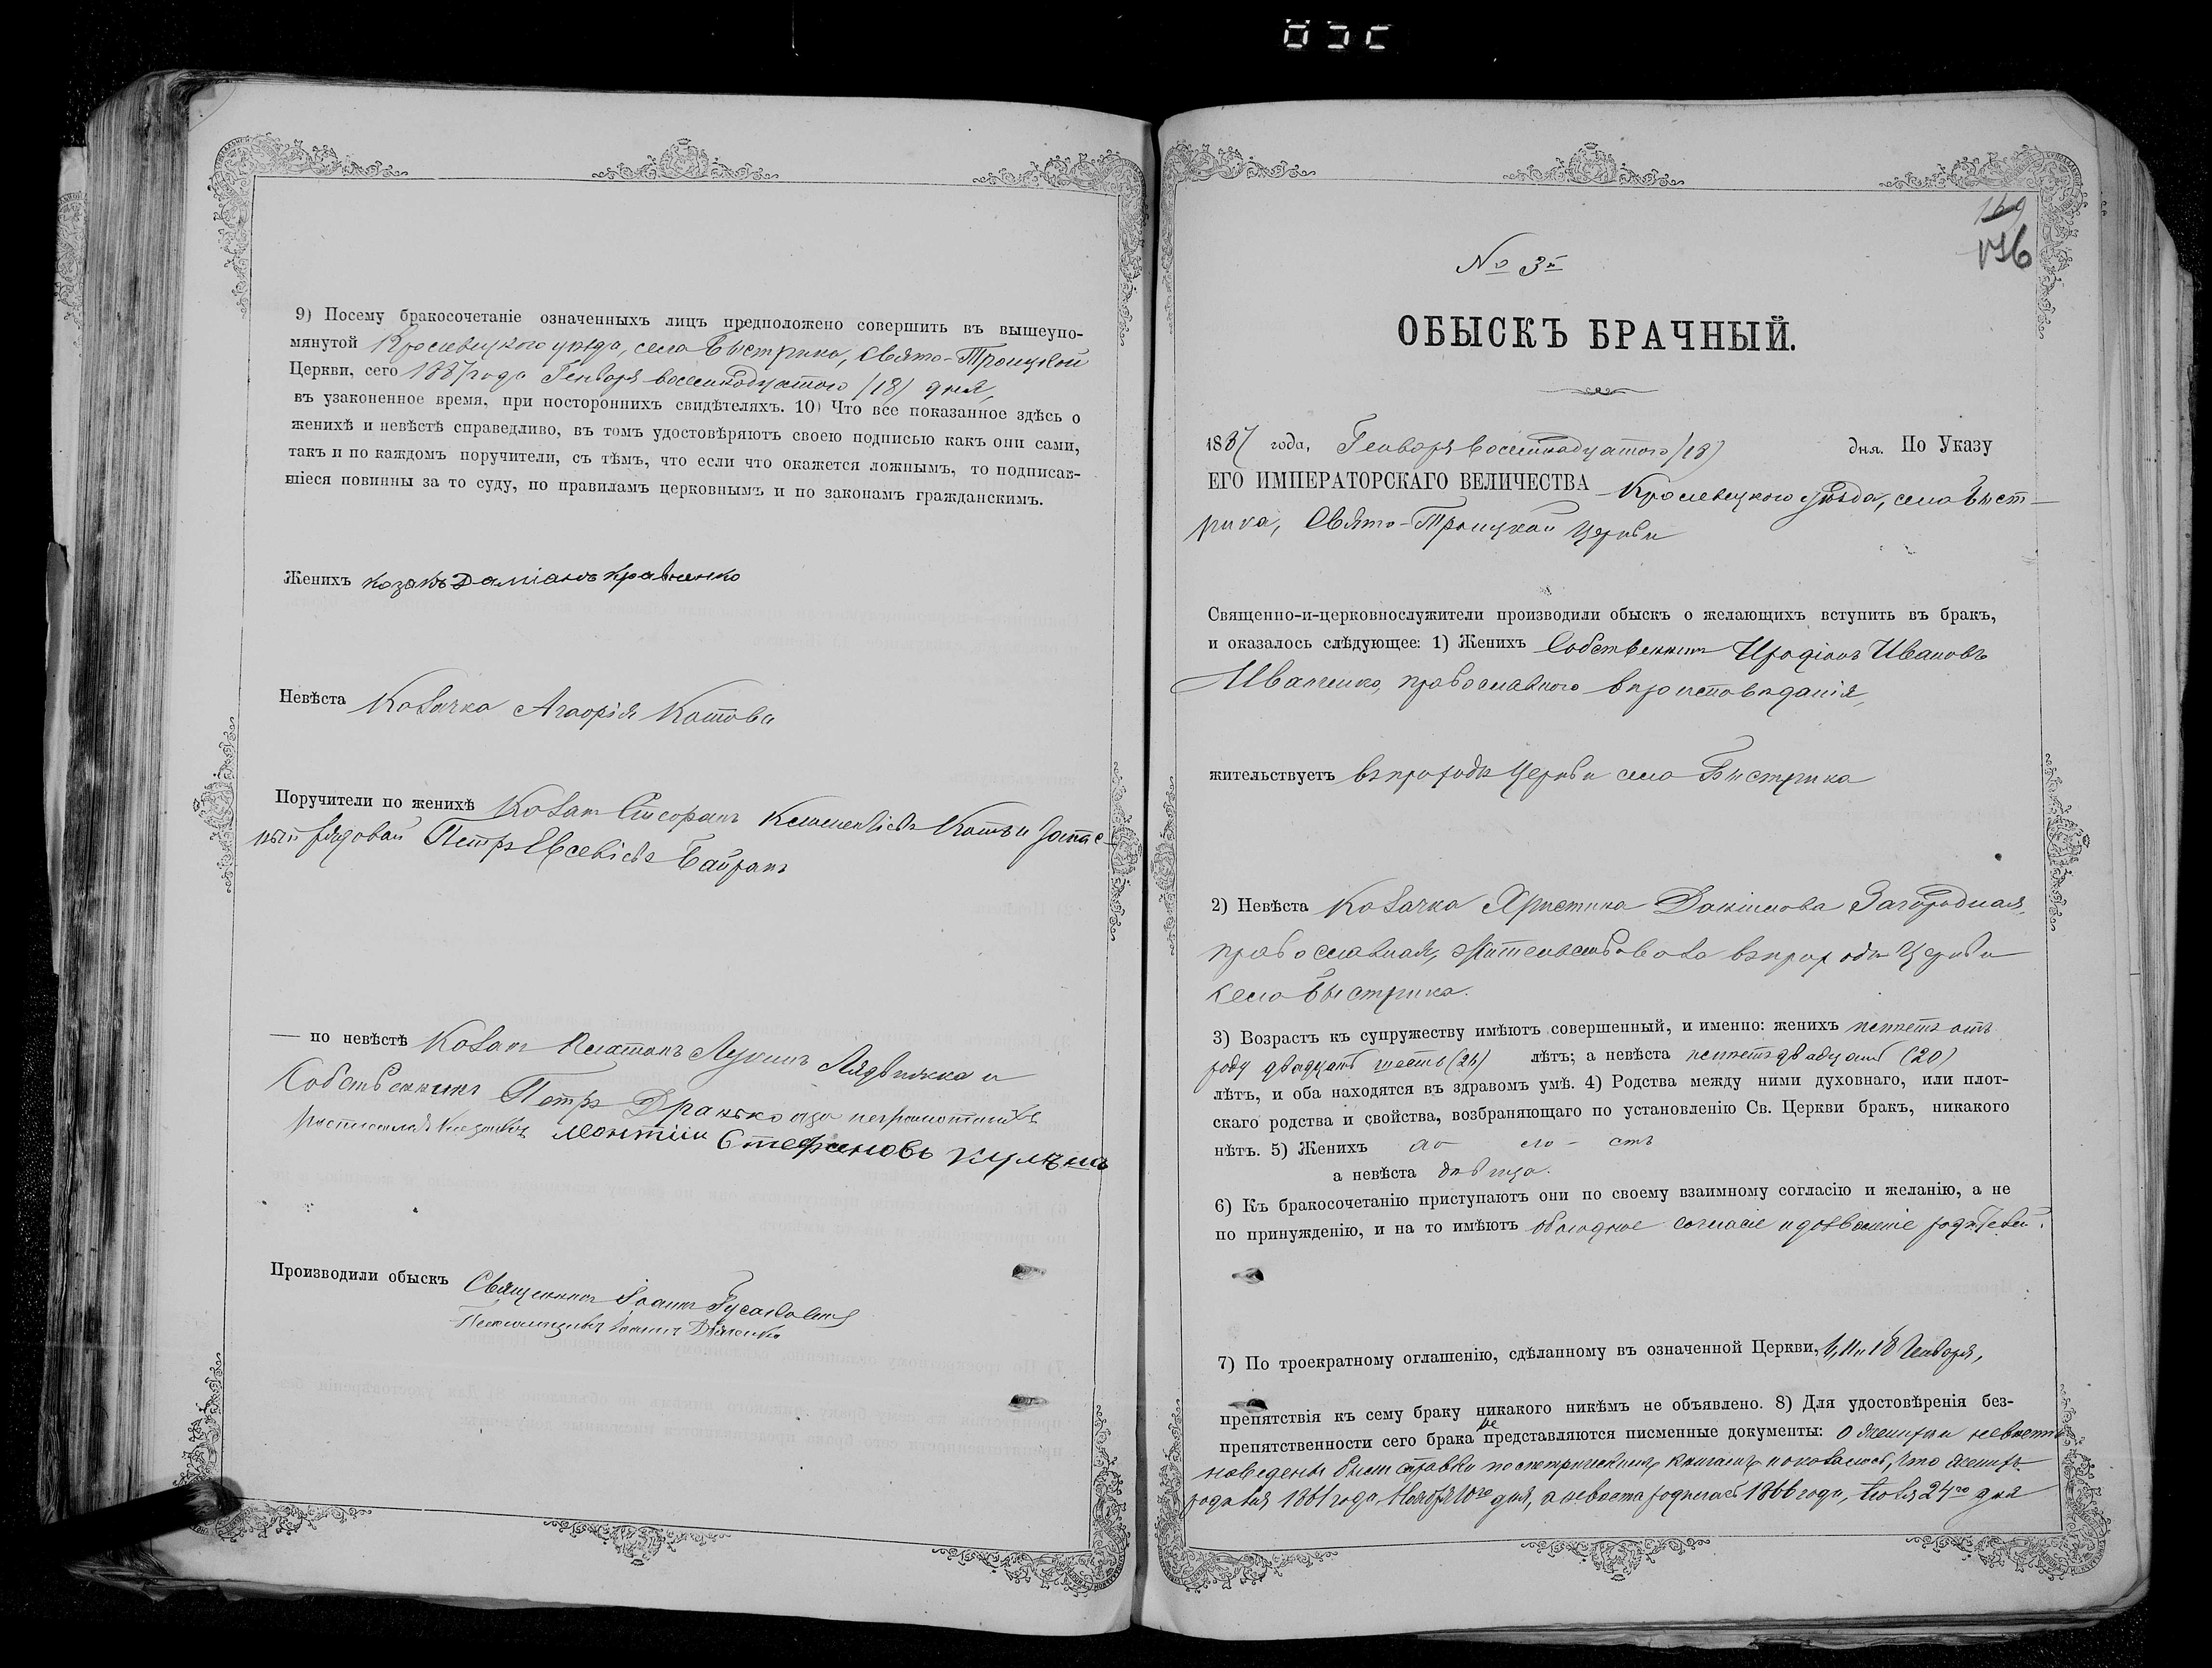 9) Посему бракосочетаніе означенныхъ лицъ предположено совершить въ вышеупо-
мянутой Кролевецкого уѣзда, села Быстрика, Свято-Троицкой
Церкви, сего 1887 года Генваря восемнадцатого /18/ дня,
въ узаконенное время, при постороннихъ свидѣтеляхъ. 10) Что все показанное здѣсь о
женихѣ и невѣстѣ справедливо, въ томъ удостовѣряютъ своею подписью какъ они сами,
такъ и по каждомъ поручители, съ тѣмъ, что если что окажется ложнымъ, то подписав-
шіеся повинны за то суду, по правиламъ церковнымъ и по законамъ гражданскимъ.
Женихъ козакъ Даміанъ Кравченко
Невѣста Козачка Котова
Поручители по женихѣ Козакъ Котъ и запас-
ный рядовой Петръ Евсевіевъ Байракъ
— по невѣстѣ Козакъ Платонъ Лукинъ и
Собственникъ Петръ неграмотныхъ
росписался козакъ Стефановъ
Производили обыскъ Священникъ Іоаннъ
Псаломщикъ
169
176
№ 3й
ОБЫСКЪ БРАЧНЫЙ.
1887 года, Генваря восемнадцатого /18/ дня. По Указу
ЕГО ИМПЕРАТОРСКАГО ВЕЛИЧЕСТВА Кролевецкого уѣзда, села Быст-
рика, Свято-Троицкой Церкви
Священно-и-церковнослужители производили обыскъ о желающихъ вступить въ бракъ,
и оказалось слѣдующее: 1) Женихъ Собственникъ Иродіонъ Ивановъ
Иваненко, православного вѣроисповѣданія,
жительствуетъ въ приходѣ Церкви села Быстрика
2) Невѣста Козачка Христина Загородная,
православная, жительствовала въ приходѣ Церкви
села Быстрика.
3) Возрастъ къ супружеству имѣютъ совершенный, и именно: женихъ имѣетъ отъ
роду двадцать шесть (26) лѣтъ; а невѣста имѣетъ двадцать (20)
лѣтъ, и оба находятся въ здравомъ умѣ. 4) Родства между ними духовнаго, или плот-
скаго родства и свойства, возбраняющаго по установленію Св. Церкви бракъ, никакого
нѣтъ. 5) Женихъ хо- ло- стъ
а невѣста дѣвица.
6) Къ бракосочетанію приступаютъ они по своему взаимному согласію и желанію, а не
по принужденію, и на то имѣютъ обоюдное согласіе и дозволеніе родителей.
7) По троекратному оглашенію, сдѣланному въ означенной Церкви, 11 и 18 Генваря,
препятствія къ сему браку никакого никѣмъ не объявлено. 8) Для удостовѣренія без-
препятственности сего брака не представляются писменные документы: о женихѣ и невѣстѣ
наведены были справки по метрическимъ книгамъ и оказалось, что женихъ
родился 1861 года Ноября 10го дня, а невѣста родилась 1866 года, Іюля 24го дня